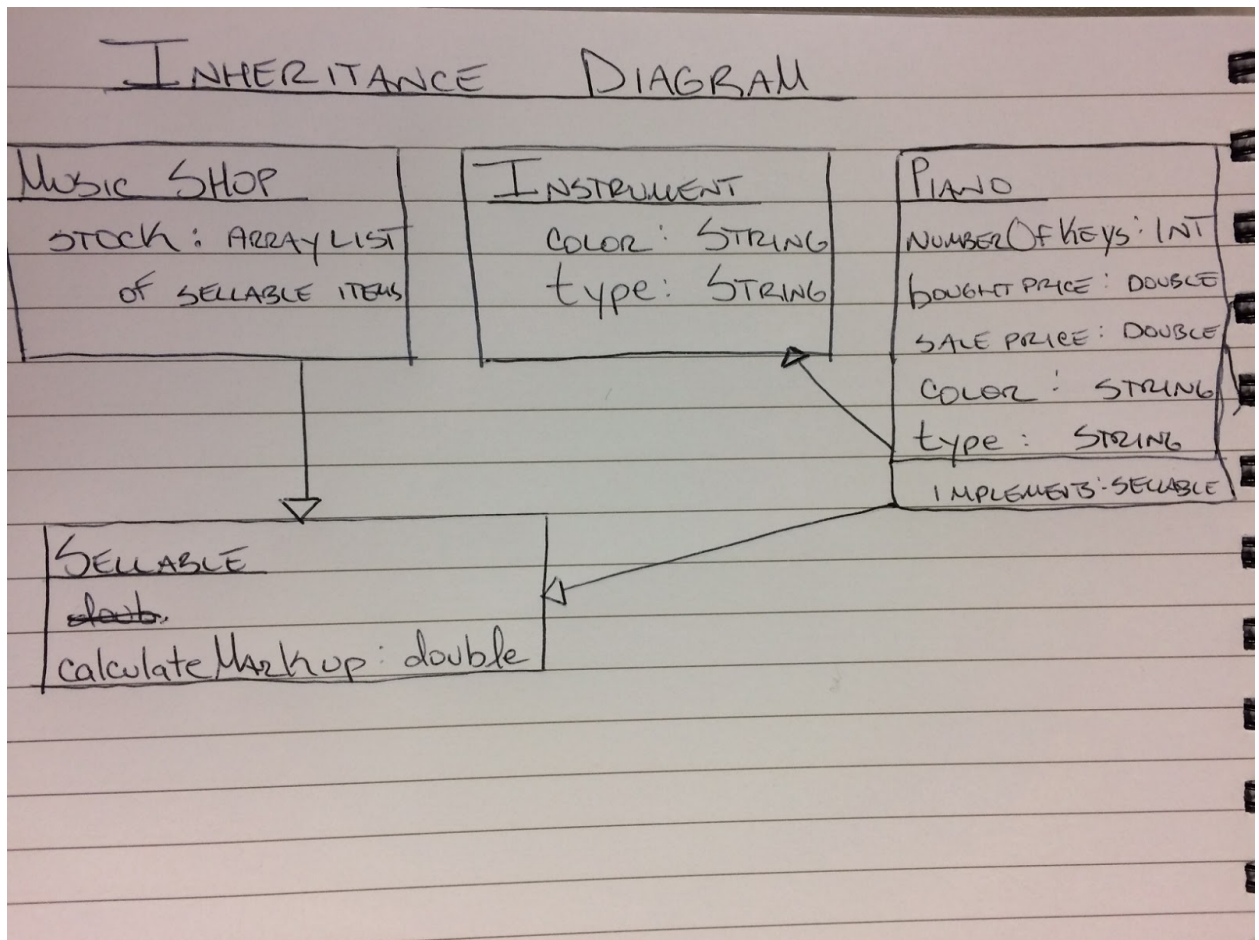 INHERITANCE DIAGRAM
MUSIC SHOP
STOCK: ARRAYLIST
OF SELLABLE ITEMS
INSTRUMENT
COLOR: STRING
type: STRING
PIANO
NUMBEROFKEYS: INT
BOUGHT PRICE: DOUBLE
SALE PRICE: DOUBLE
COLOR: STRING
type: STRING
IMPLEMENTS: SELLABLE
SELLABLE
doub
calculateMarkup: double